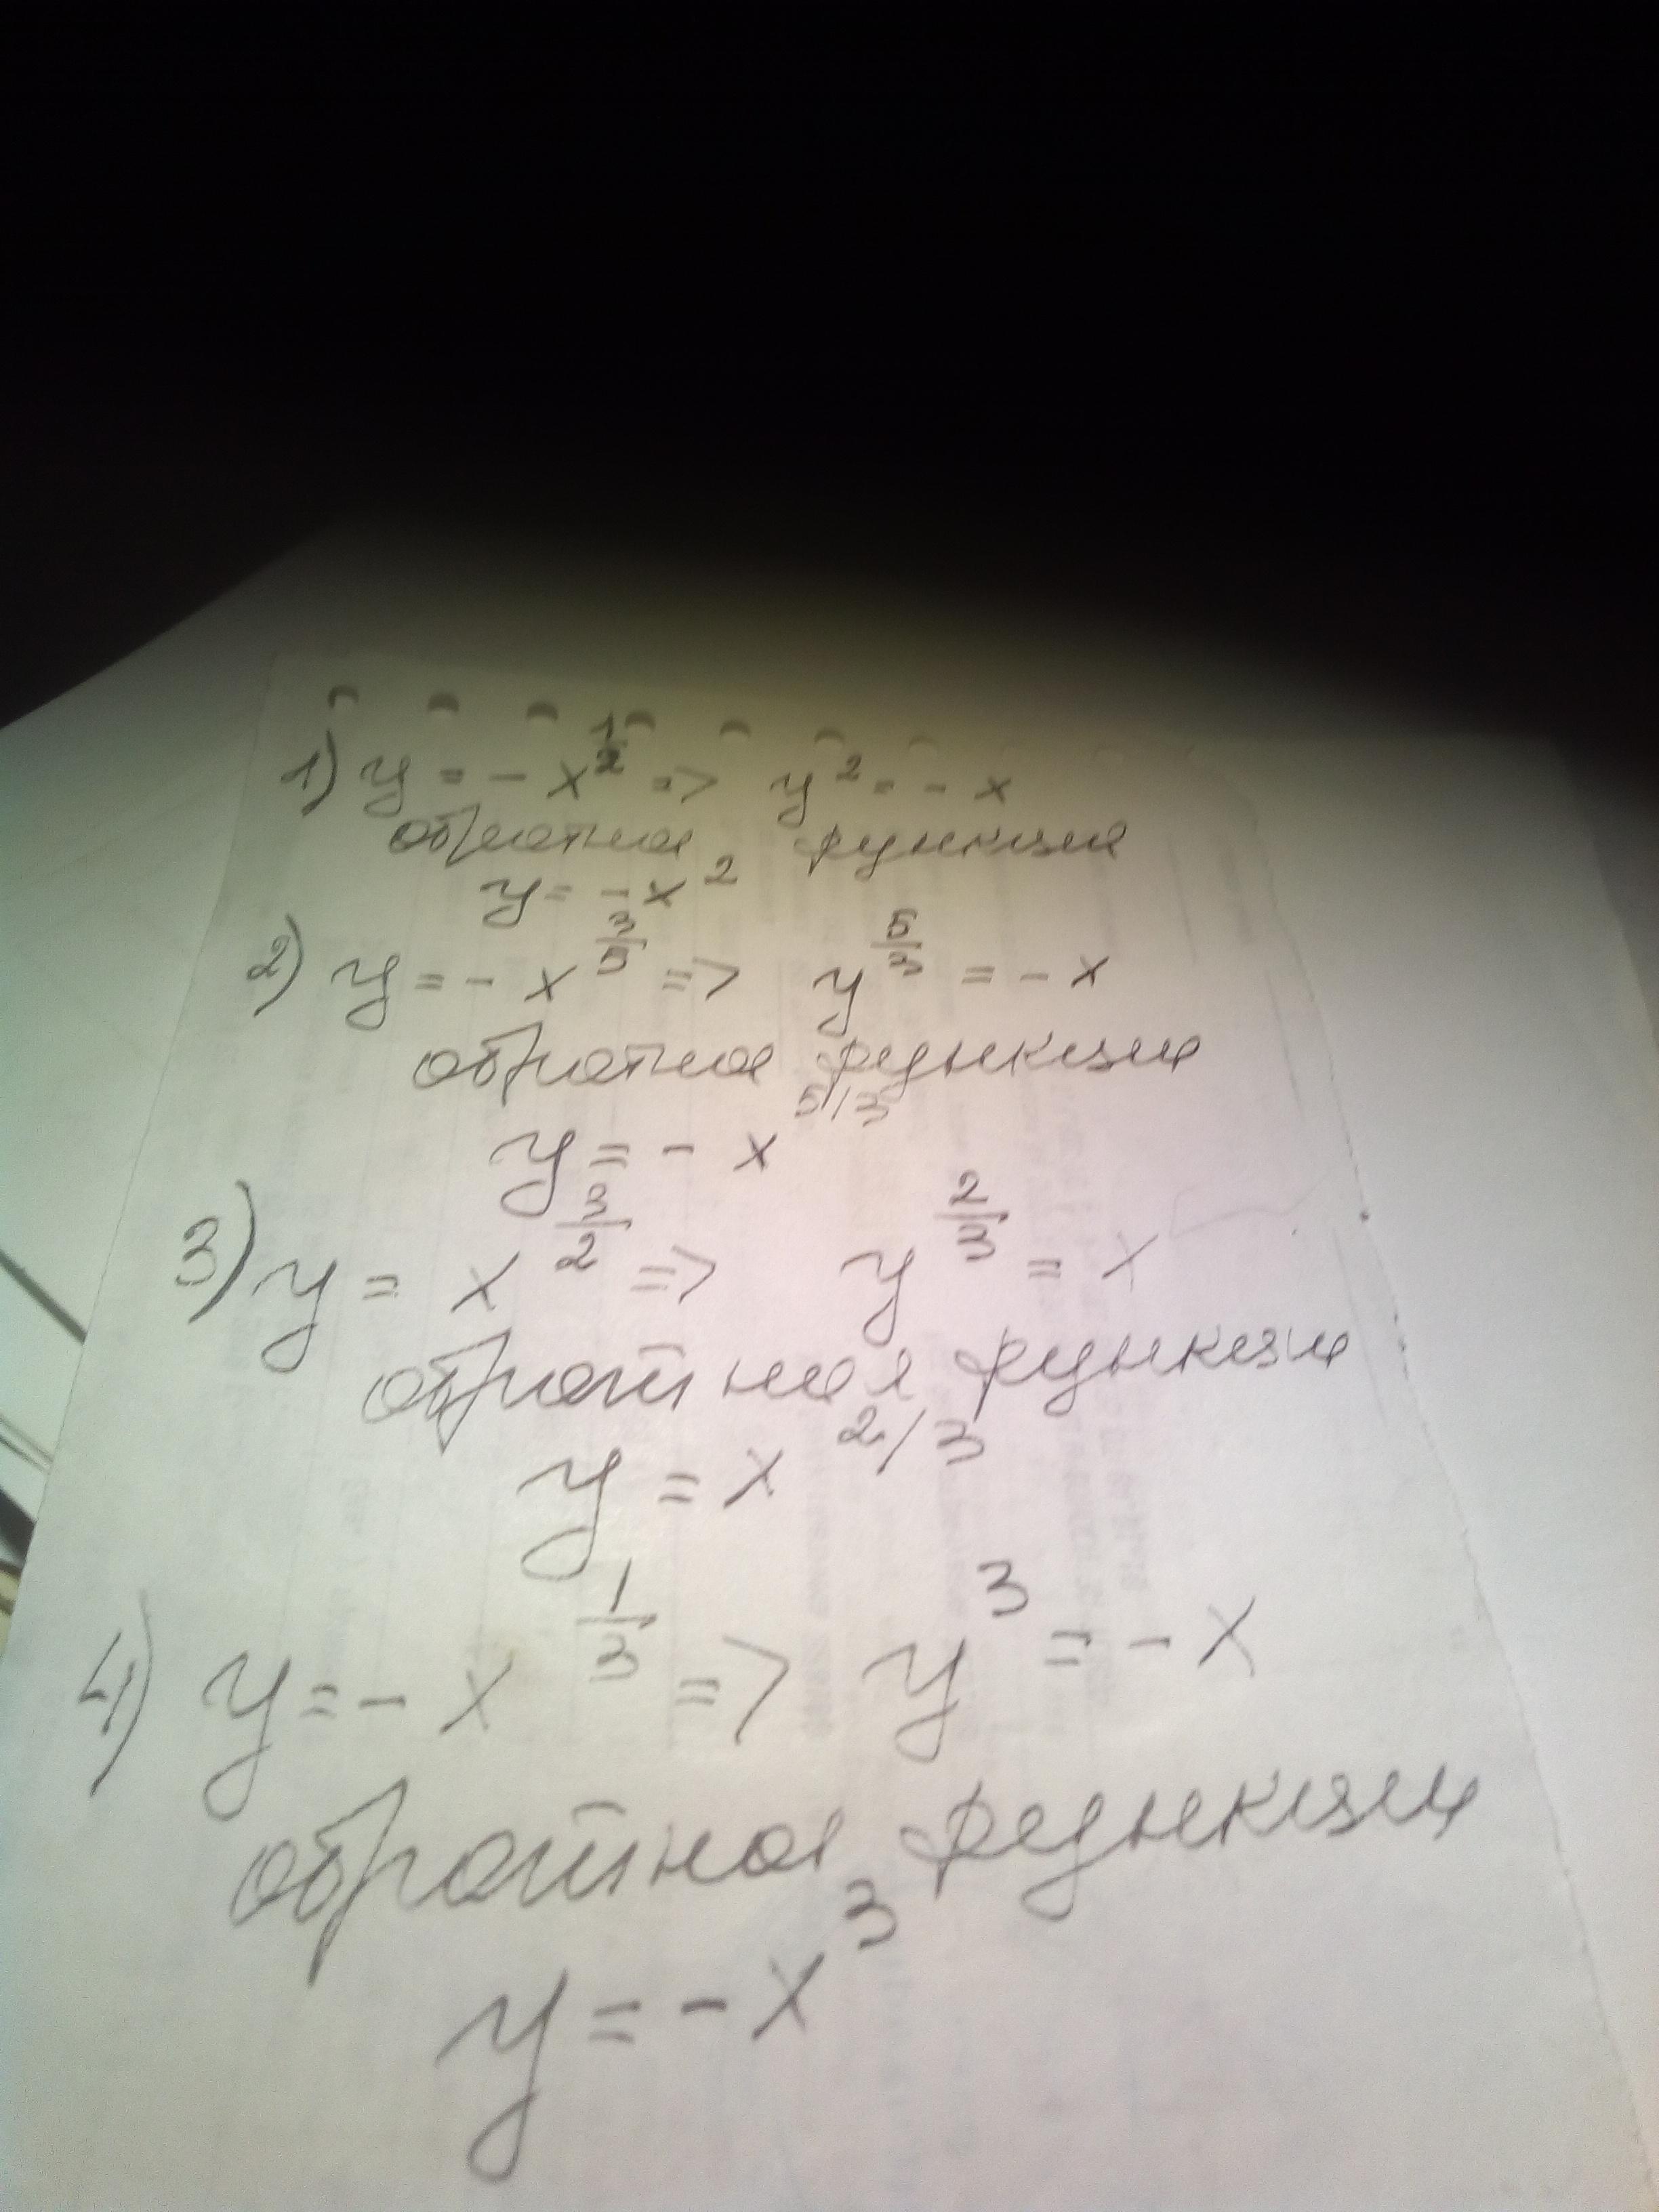 1) y = - x^{1/2} => y^2 = - x
обратная функция
y = - x^2
2) y = - x^{3/5} => y^{5/3} = - x
обратная функция
y = - x^{5/3}
3) y = x^{3/2} => y^{2/3} = x
обратная функция
y = x^{2/3}
4) y = - x^{1/3} => y^3 = - x
обратная функция
y = - x^3